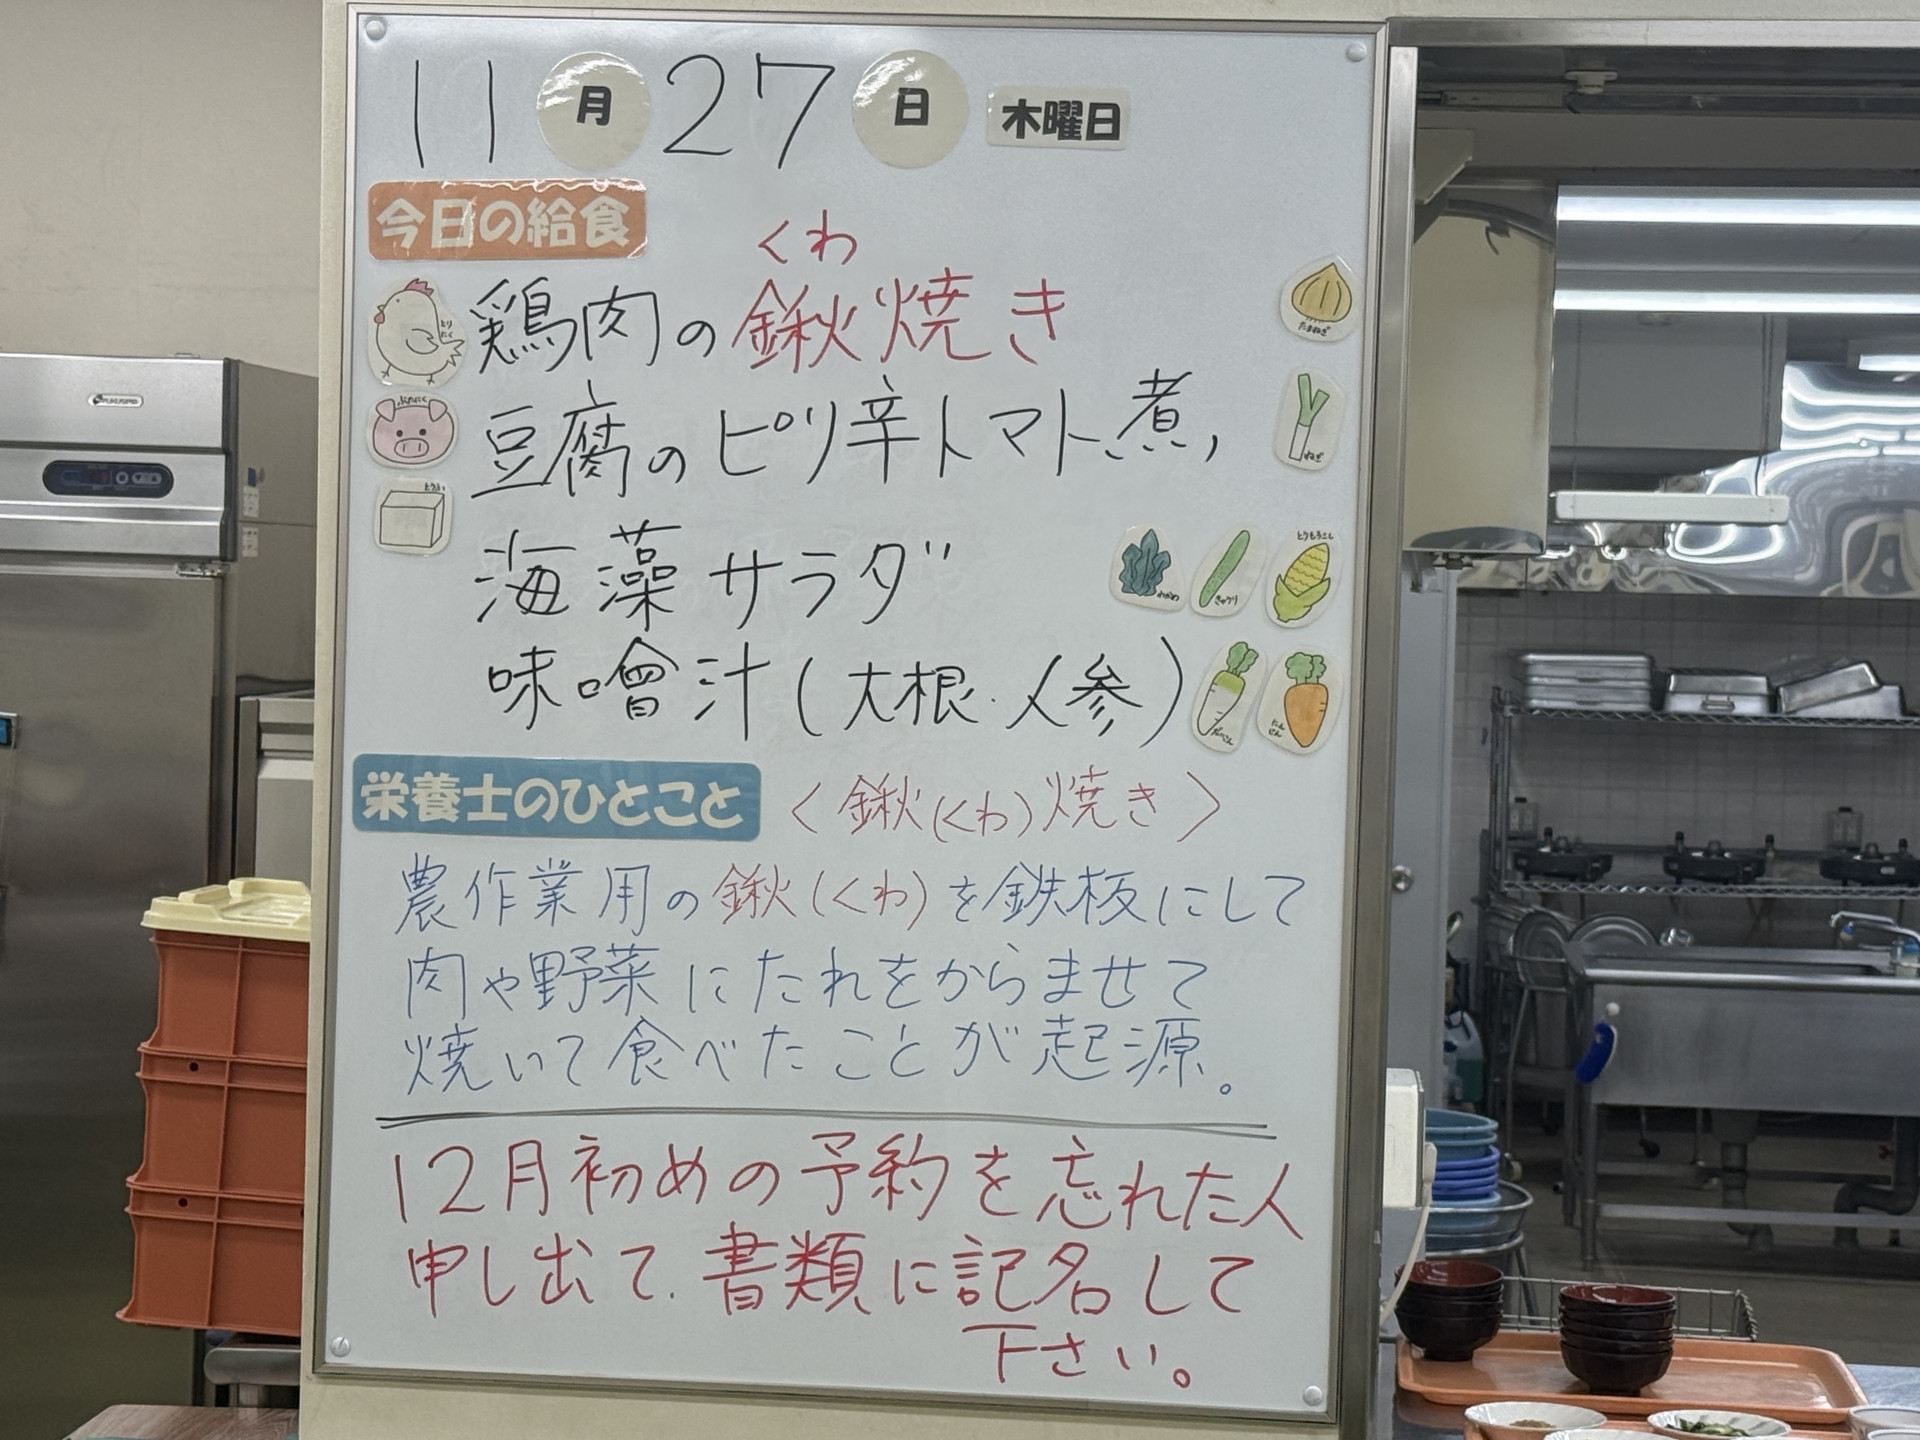 11月27日 木曜日
今日の給食
くわ
鶏肉の鍬焼き
豆腐のピリ辛トマト煮,
海藻サラダ
味噌汁(大根・人参)
とりにく
ぶたにく
とうふ
たまねぎ
ねぎ
わかめ
きゅうり
とうもろこし
だいこん
にんじん
栄養士のひとこと 〈鍬(くわ)焼き〉
農作業用の鍬(くわ)を鉄板にして
肉や野菜にたれをからませて
焼いて食べたことが起源。
12月初めの予約を忘れた人
申し出て、書類に記名して
下さい。